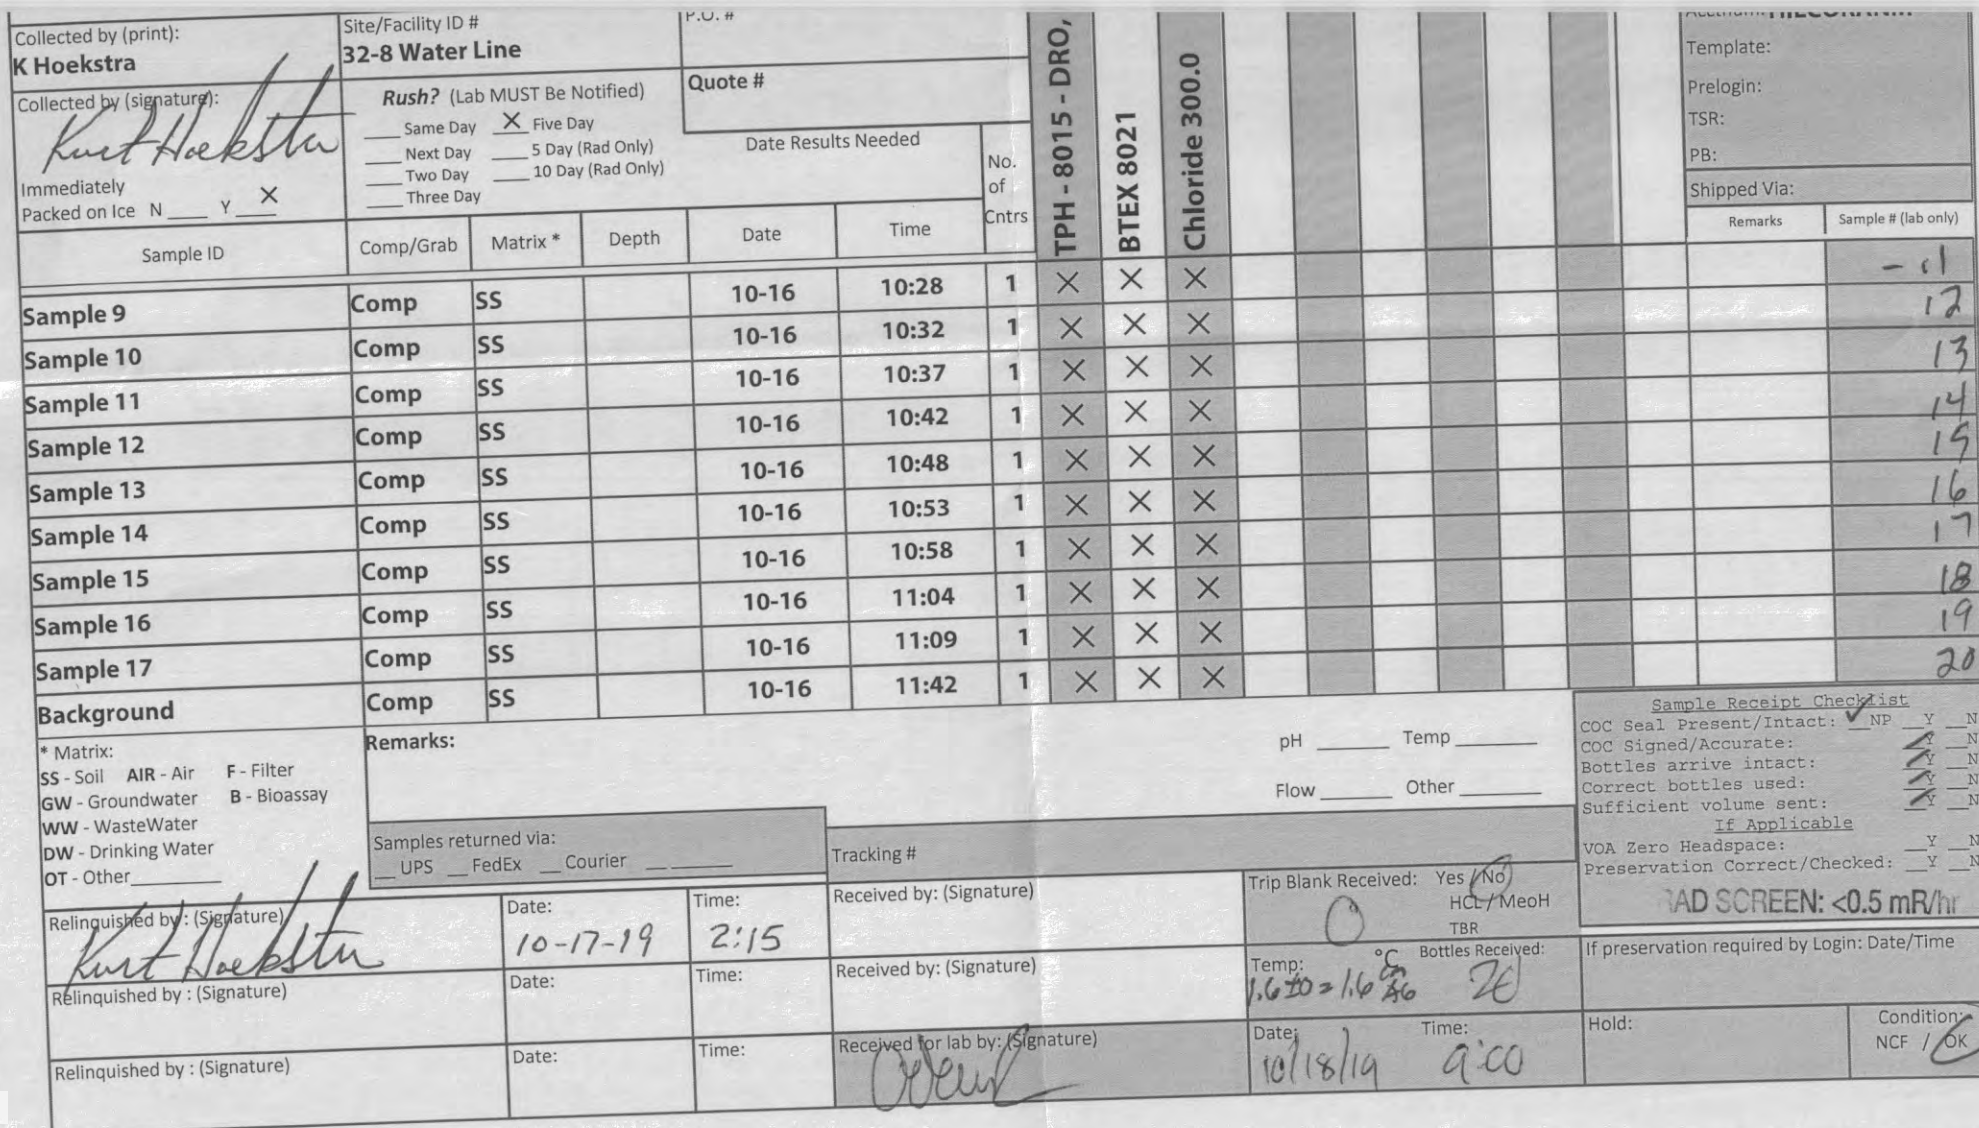 Collected by (print):
K Hoekstra
Site/Facility ID #
32-8 Water Line
P.O. #
Collected by (signature):
Kurt Hoekstra
Immediately
Packed on Ice N ____ Y ____ X
Rush? (Lab MUST Be Notified)
____ Same Day X Five Day
____ Next Day ____ 5 Day (Rad Only)
____ Two Day ____ 10 Day (Rad Only)
____ Three Day
Quote #
Date Results Needed
No.
of
Cntrs
TPH - 8015 - DRO,
BTEX 8021
Chloride 300.0
Template:
Prelogin:
TSR:
PB:
Shipped Via:
Sample ID Comp/Grab Matrix * Depth Date Time Remarks Sample # (lab only)
Sample 9 Comp SS 10-16 10:28 1 X X X - 11
Sample 10 Comp SS 10-16 10:32 1 X X X 12
Sample 11 Comp SS 10-16 10:37 1 X X X 13
Sample 12 Comp SS 10-16 10:42 1 X X X 14
Sample 13 Comp SS 10-16 10:48 1 X X X 15
Sample 14 Comp SS 10-16 10:53 1 X X X 16
Sample 15 Comp SS 10-16 10:58 1 X X X 17
Sample 16 Comp SS 10-16 11:04 1 X X X 18
Sample 17 Comp SS 10-16 11:09 1 X X X 19
Background Comp SS 10-16 11:42 1 X X X 20
* Matrix:
SS - Soil AIR - Air F - Filter
GW - Groundwater B - Bioassay
WW - WasteWater
DW - Drinking Water
OT - Other________
Remarks:
pH ______ Temp ______
Flow ______ Other ______
Samples returned via:
__ UPS __ FedEx __ Courier __ ______
Tracking #
Sample Receipt Checklist
COC Seal Present/Intact: ✓ NP __Y __N
COC Signed/Accurate: __Y __N
Bottles arrive intact: __Y __N
Correct bottles used: __Y __N
Sufficient volume sent: __Y __N
If Applicable
VOA Zero Headspace: __Y __N
Preservation Correct/Checked: __Y __N
RAD SCREEN: <0.5 mR/hr
Relinquished by : (Signature)
Kurt Hoekstra
Date:
10-17-19
Time:
2:15
Received by: (Signature)
Trip Blank Received: Yes / No
0
HCL / MeoH
TBR
Relinquished by : (Signature)
Date:
Time:
Received by: (Signature)
Temp: °C Bottles Received:
1.6±0=1.6 20
If preservation required by Login: Date/Time
Relinquished by : (Signature)
Date:
Time:
Received for lab by: (Signature)
Date:
10/18/19
Time:
9:00
Hold:
Condition:
NCF / OK